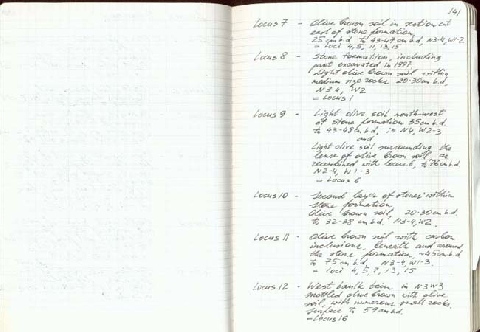 141
Locus 7 - Olive brown soil in
east of stone formation,
25 cm b.d. to 43-49 cm b.d., N3-4, W1-3
= loci 4, 5, 11, 13, 15
Locus 8 - Stone formation, including
part excavated in
Light olive brown soil within
medium size rocks 20-30 cm b.d.
N3-4, W2
= Locus 1
Locus 9 - Light olive soil south-west
of stone formation 35 cm b.d.
to 43-48 cm b.d., in N4, W2-3
and
Light olive soil surrounding the
lense of olive brown soil
with locus 6, to cm b.d.
N2-4, W1-3
= Locus 6
Locus 10 - Second layer of stones within
stone formation
Olive brown soil, 20-30 cm b.d.
to 32-38 cm b.d., N3-4, W2
Locus 11 - Olive brown soil with carbon
inclusions, beneath and around
the stone formation, ~45 cm b.d.
to 75 cm b.d. N2-4, W1-3.
= loci 4, 5, 7, 13, 15
Locus 12 - West baulk in N3 W3
mottled olive brown with olive
soil, with numerous small rocks.
Surface to 59 cm b.d.
= Locus 16